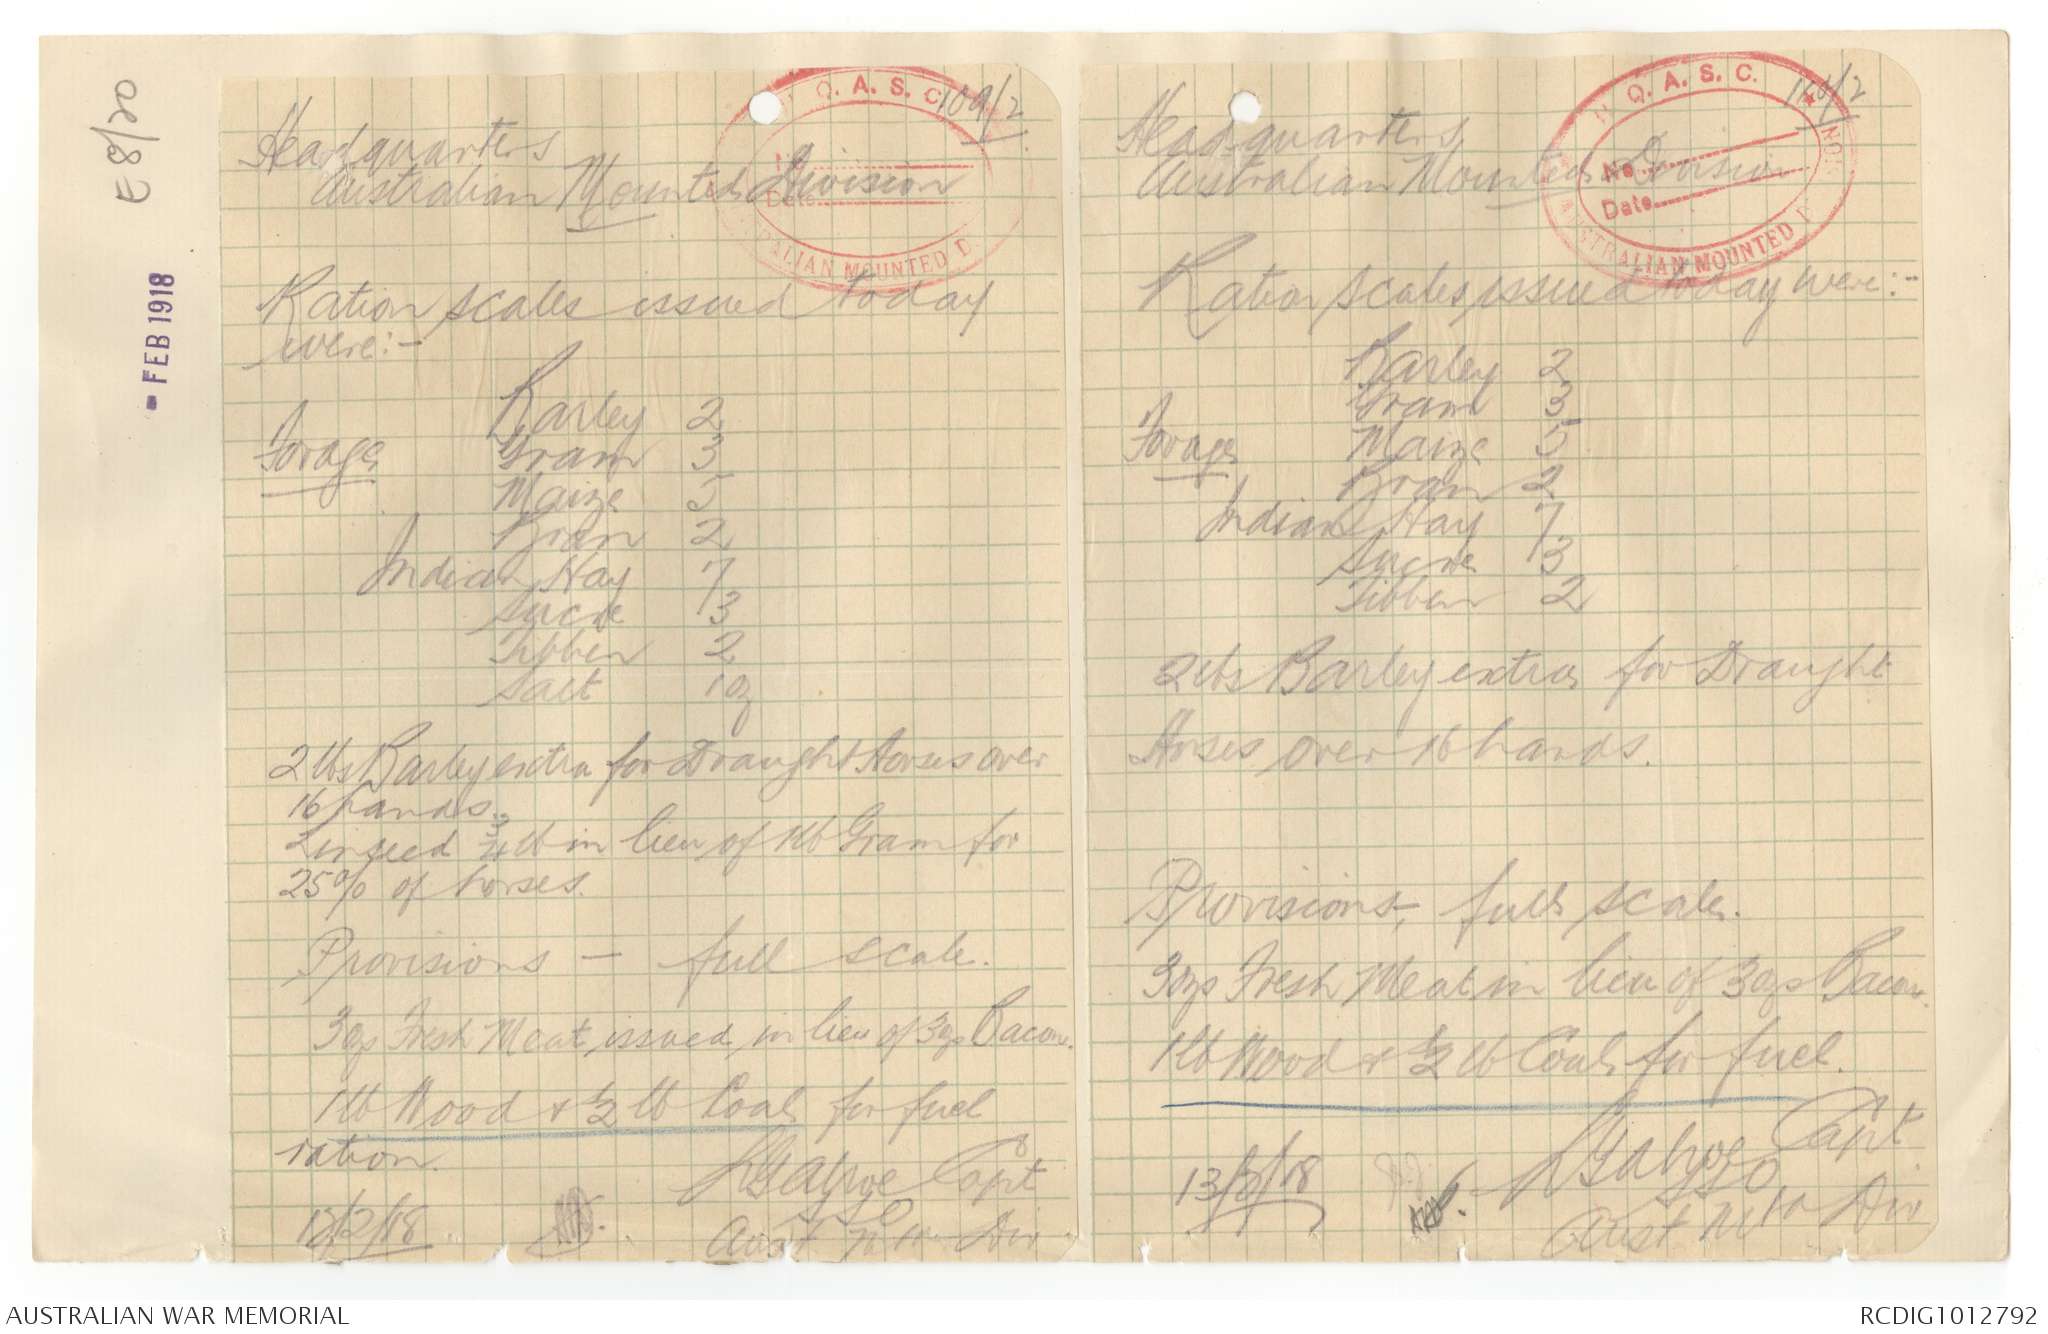 E8/20
- FEB 1918
H.Q. A. S. C.
AUSTRALIAN MOUNTED D
Date
109/2
Headquarters
Australian Mounted Division
Ration scales issued today
were:-
Forage
Barley 2
Gram 3
Maize 5
Bran 2
Indian Hay 7
Sucre 3
Tibben 2
Salt 1 oz
2 lbs Barley extra for Draught Horses over
16 hands.
Linseed 3/4 lb in lieu of 1lb Gram for
25% of horses.
Provisions - full scale.
3ozs Fresh Meat issued in lieu of 3ozs Bacon.
1 lb Wood & 1/2 lb Coal for fuel
ration.
Capt
SSO
12/2/18
Aust Mtd Div
H.Q. A. S. C.
No.
Date
AUSTRALIAN MOUNTED D
110/2
Headquarters
Australian Mounted Division
Ration scales issued today were:-
Forage
Barley 2
Gram 3
Maize 5
Bran 2
Indian Hay 7
Sucre 3
Tibben 2
2 lbs Barley extra for Draught
Horses over 16 hands.
Provisions, full scale.
3ozs Fresh Meat in lieu of 3 ozs Bacon.
1 lb Wood & 1/2 lb Coal for fuel.
Capt
SSO
13/2/18
Aust Mtd Div
AUSTRALIAN WAR MEMORIAL
RCDIG1012792